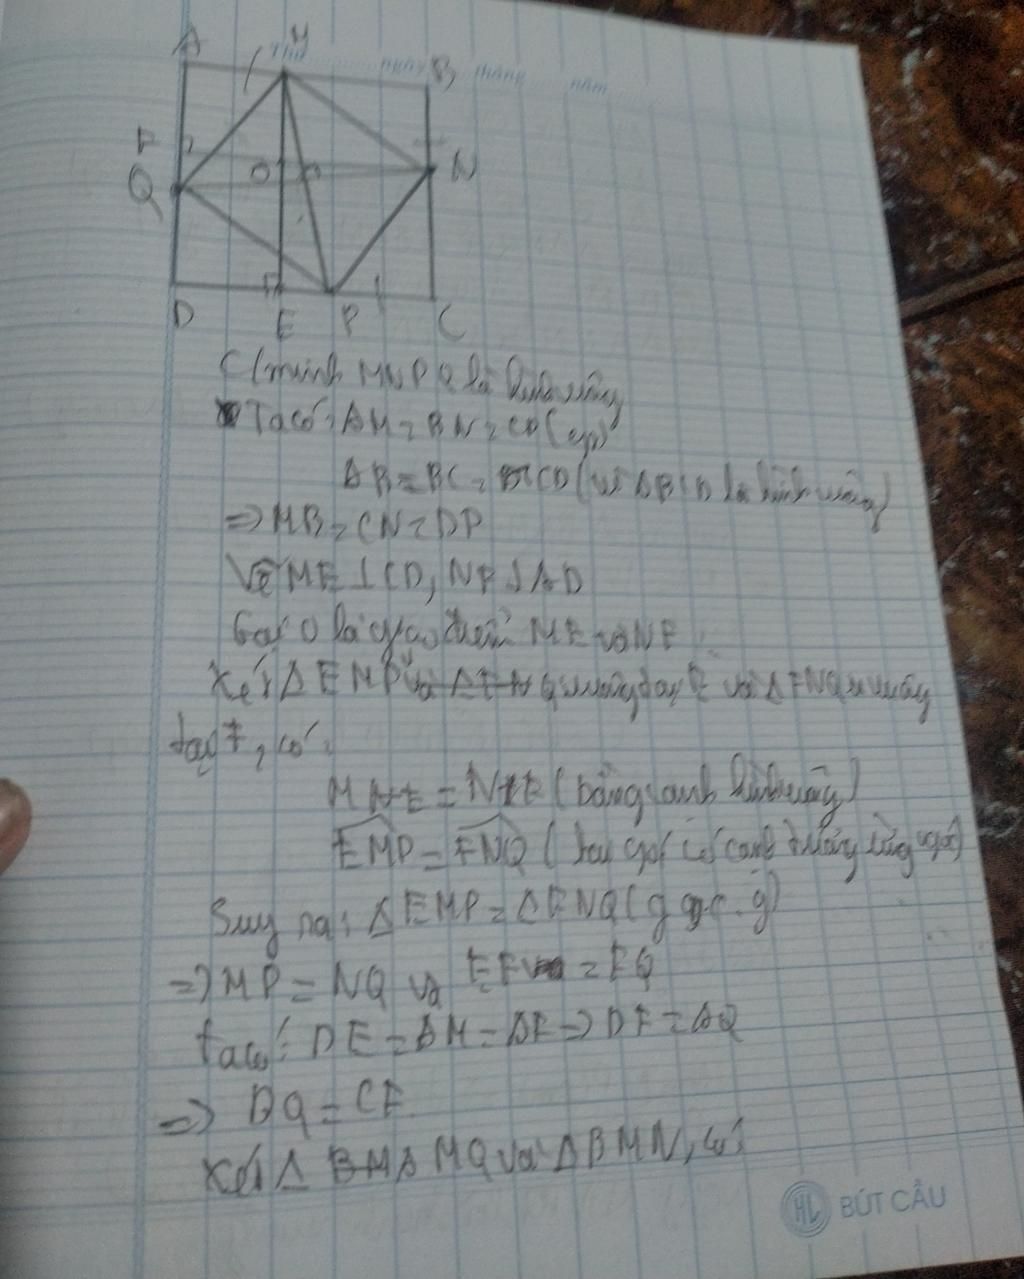 A M B
Thứ ngày tháng năm
F
Q O N
D E P C
C/minh MNPQ là hình vuông
Ta có: AM = BN = CP (gt)
AB = BC = CD (vì ABCD là hình vuông)
=> MB = CN = DP
Vẽ ME ⊥ CD, NF ⊥ AD
Gọi O là giao điểm ME và NF
Xét Δ EMP vuông tại E và Δ FNQ vuông
tại F, có:
ME = NF (bằng cạnh hình vuông)
EMP = FNQ (hai góc có cạnh tương ứng vuông góc)
Suy ra: Δ EMP = Δ FNQ (g.c.g)
=> MP = NQ và EP = FQ
Ta có: DE = AM = AF => DF = AQ
=> DQ = CF
Xét Δ AMQ và Δ BMN, có:
HL BÚT CẦU